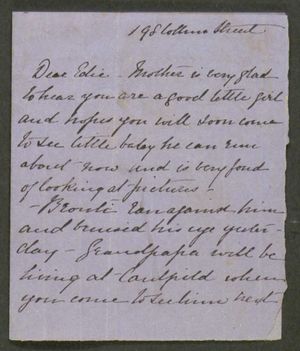 198 Collins Street
Dear Edie - Mother is very glad
to hear you are a good little girl
and hopes you will soon come
to see little baby he can run
about now and is very fond
of looking at pictures -
- ran against him
and bruised his eye yester-
day - Grandpapa will be
living at Caulfield when
you come to see him next